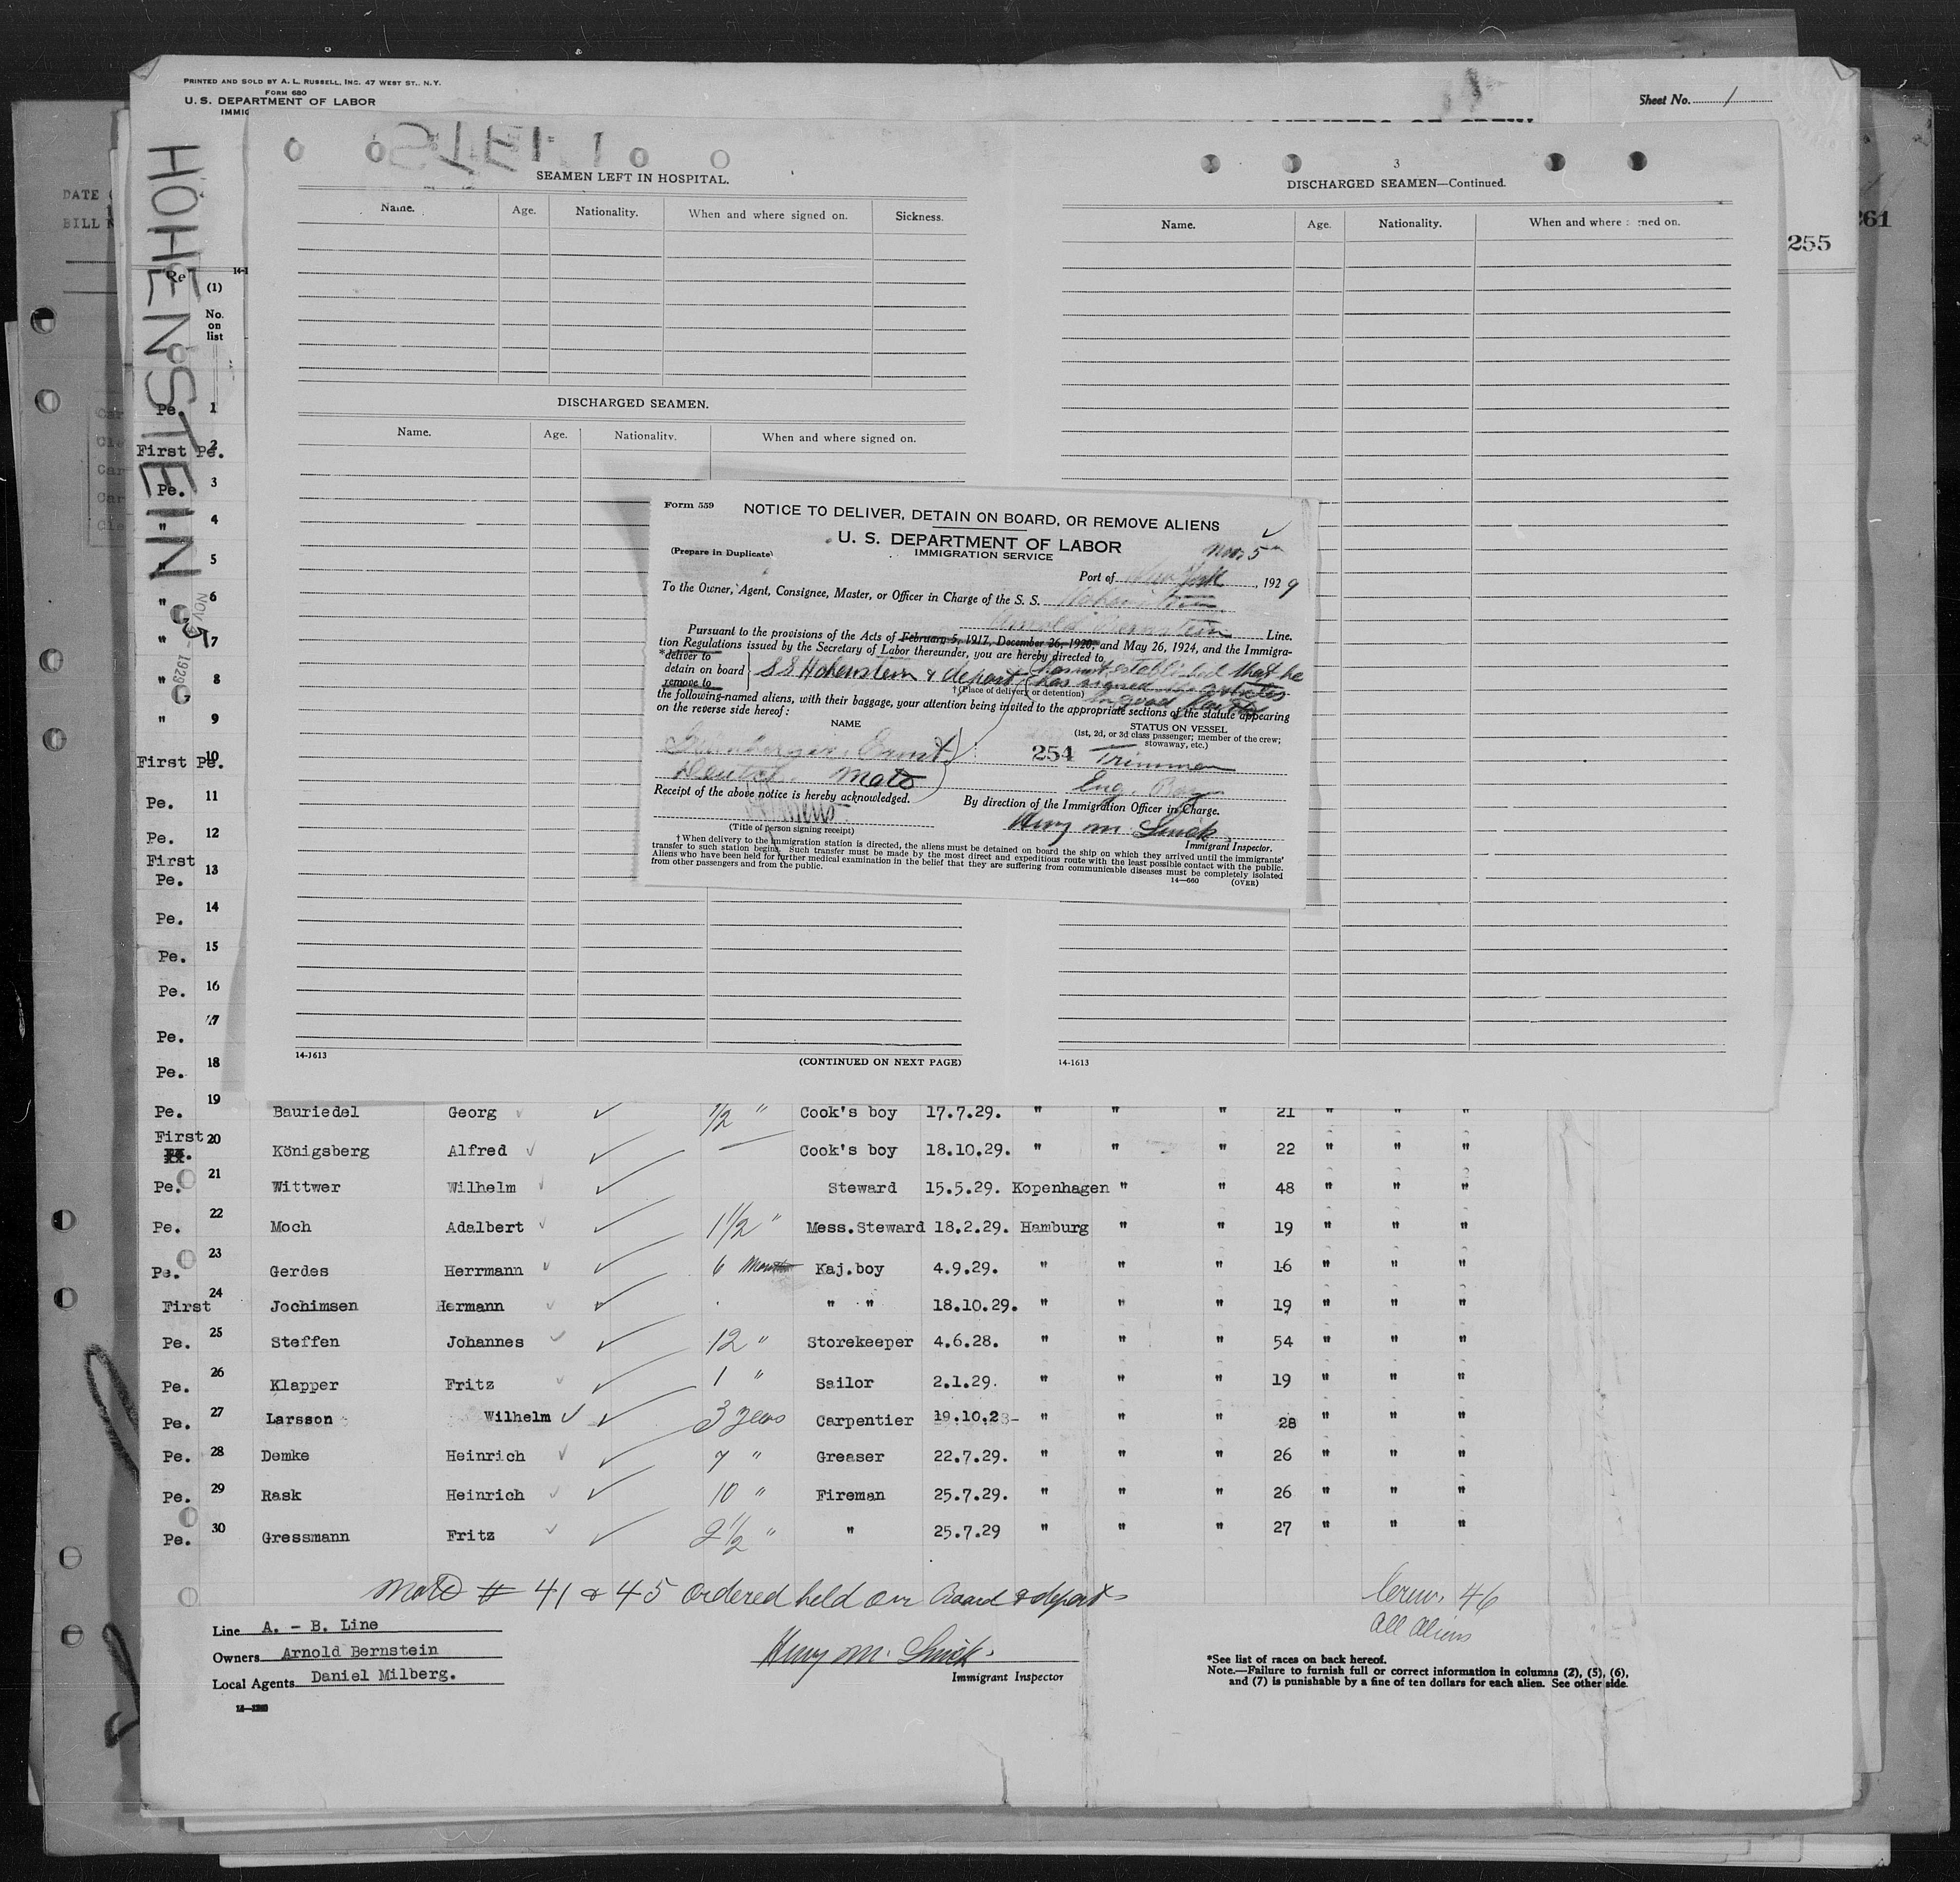 PRINTED AND SOLD BY A. L. RUSSELL, INC. 47 WEST ST., N.Y.
FORM 680
U. S. DEPARTMENT OF LABOR
Sheet No. 1
HOHENSTEIN
DATE
BILL
261
255
NOV 5 - 1929
(1)
No. on list
SEAMEN LEFT IN HOSPITAL.
Name. Age. Nationality. When and where signed on. Sickness.
DISCHARGED SEAMEN.
Name. Age. Nationality. When and where signed on.
14-1613 (CONTINUED ON NEXT PAGE)
3
DISCHARGED SEAMEN—Continued.
Name. Age. Nationality. When and where signed on.
14-1613
Form 559
NOTICE TO DELIVER, DETAIN ON BOARD, OR REMOVE ALIENS
U. S. DEPARTMENT OF LABOR
IMMIGRATION SERVICE
(Prepare in Duplicate)
Nov. 5
Port of New York, 1929
To the Owner, Agent, Consignee, Master, or Officer in Charge of the S. S. Hohenstein
Arnold Bernstein Line.
Pursuant to the provisions of the Acts of February 5, 1917, December 26, 1920, and May 26, 1924, and the Immigra-
tion Regulations issued by the Secretary of Labor thereunder, you are hereby directed to
*deliver to
detain on board
remove to
SS Hohenstein & deport
has not established that he
has signed articles
in good faith
† (Place of delivery or detention)
the following-named aliens, with their baggage, your attention being invited to the appropriate sections of the statute appearing
on the reverse side hereof:
NAME
STATUS ON VESSEL
(1st, 2d, or 3d class passenger; member of the crew;
stowaway, etc.)
Ernst 254 Trimmer
Deutsch, Mato Eng. Boy
Receipt of the above notice is hereby acknowledged.
By direction of the Immigration Officer in Charge.
Henry M. Smick
(Title of person signing receipt)
Immigrant Inspector.
† When delivery to the immigration station is directed, the aliens must be detained on board the ship on which they arrived until the immigrants'
transfer to such station begins. Such transfer must be made by the most direct and expeditious route with the least possible contact with the public.
Aliens who have been held for further medical examination in the belief that they are suffering from communicable diseases must be completely isolated
from other passengers and from the public.
14—660 (OVER)
Pe. 1
First Pe. 2
Pe. 3
" 4
" 5
" 6
" 7
" 8
" 9
First Pe. 10
Pe. 11
Pe. 12
First Pe. 13
Pe. 14
Pe. 15
Pe. 16
Pe. 17
Pe. 18
Pe. 19 Bauriedel Georg 1/2 " Cook's boy 17.7.29. " " " 21 " " "
First 20 Königsberg Alfred — Cook's boy 18.10.29. " " " 22 " " "
Pe. 21 Wittwer Wilhelm Steward 15.5.29. Kopenhagen " " 48 " " "
Pe. 22 Moch Adalbert 1 1/2 " Mess.Steward 18.2.29. Hamburg " " 19 " " "
Pe. 23 Gerdes Herrmann 6 Months Kaj.boy 4.9.29. " " " 16 " " "
First 24 Jochimsen Hermann " " 18.10.29. " " " 19 " " "
Pe. 25 Steffen Johannes 12 " Storekeeper 4.6.28. " " " 54 " " "
Pe. 26 Klapper Fritz 1 " Sailor 2.1.29. " " " 19 " " "
Pe. 27 Larsson Wilhelm 3 years Carpentier 19.10.28- " " " 28 " " "
Pe. 28 Demke Heinrich 7 " Greaser 22.7.29. " " " 26 " " "
Pe. 29 Rask Heinrich 10 " Fireman 25.7.29. " " " 26 " " "
Pe. 30 Gressmann Fritz 2 1/2 " " 25.7.29 " " " 27 " " "
# 41 & 45 ordered held on Board & deport
Crew, 46
All Aliens
Line A. - B. Line
Owners Arnold Bernstein
Local Agents Daniel Milberg.
Henry M. Smick
Immigrant Inspector
*See list of races on back hereof.
Note.—Failure to furnish full or correct information in columns (2), (5), (6),
and (7) is punishable by a fine of ten dollars for each alien. See other side.